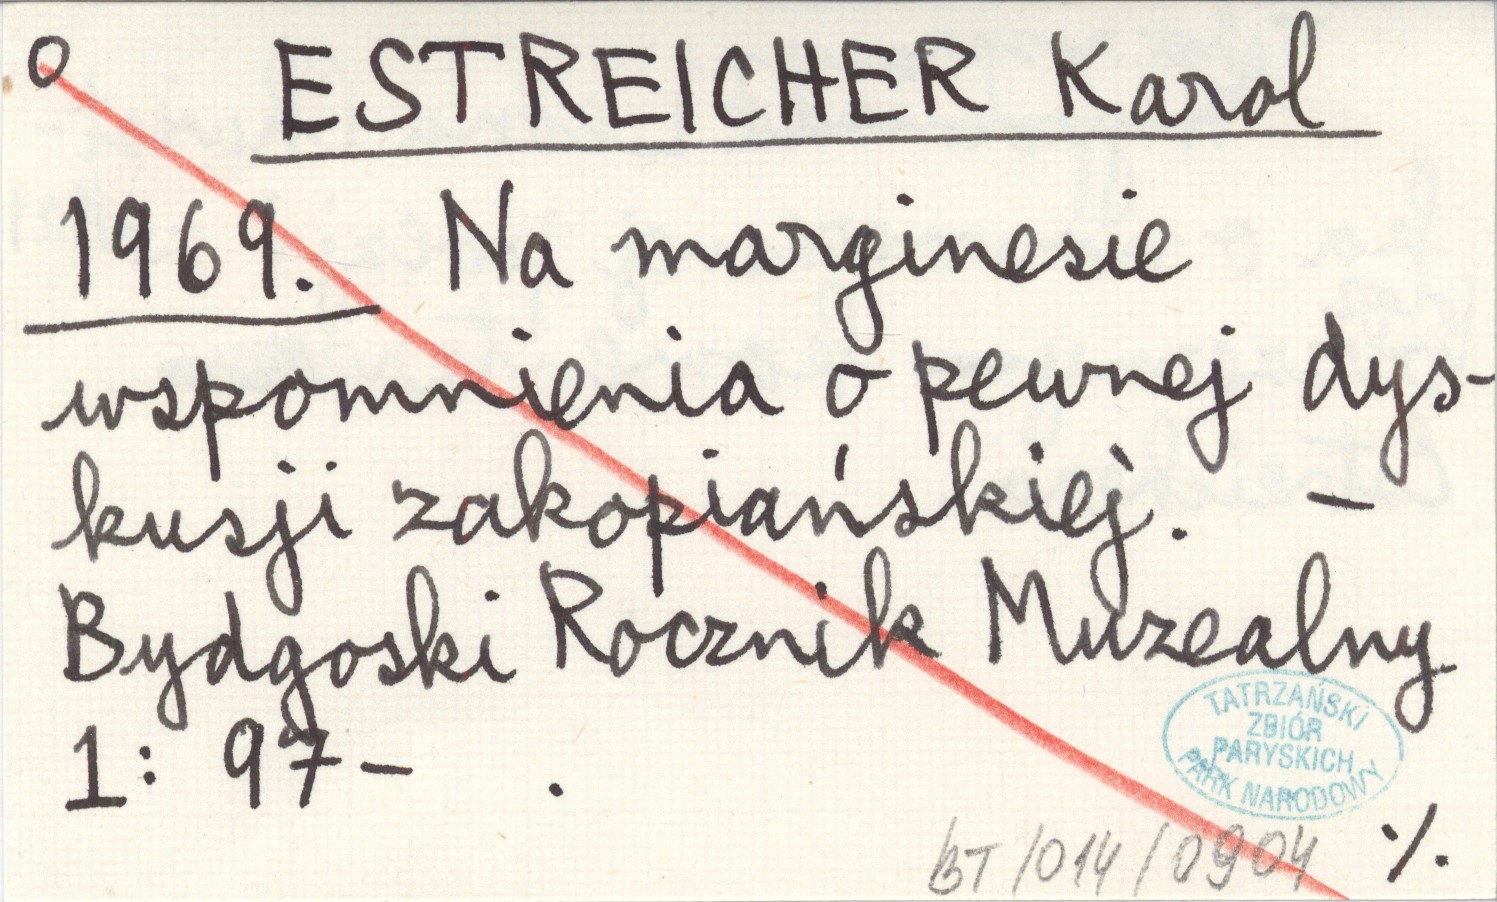 o ESTREICHER Karol
1969. Na marginesie
wspomnienia o pewnej dys-
kusji zakopiańskiej. –
Bydgoski Rocznik Muzealny
1: 97– .
TATRZAŃSKI
ZBIÓR
PARYSKICH
PARK NARODOWY
BT/014/0904 ·/.